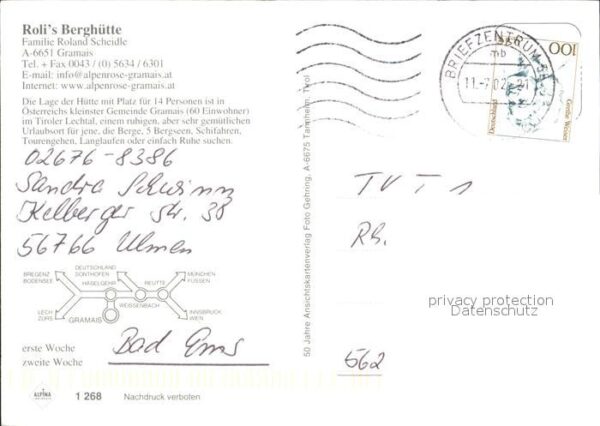 Roli's Berghütte
Familie Roland Scheidle
A-6651 Gramais
Tel. + Fax 0043 / (0) 5634 / 6301
E-mail: info@alpenrose-gramais.at
Internet: www.alpenrose-gramais.at
Die Lage der Hütte mit Platz für 14 Personen ist in
Österreichs kleinster Gemeinde Gramais (60 Einwohner)
im Tiroler Lechtal, einem ruhigen, aber sehr gemütlichen
Urlaubsort für jene, die Berge, 5 Bergseen, Schifahren,
Tourengehen, Langlaufen oder einfach Ruhe suchen.
02676-8386
Sandra Schwinn
Kelberger Str. 38
56766 Ulmen
BREGENZ
BODENSEE
DEUTSCHLAND
SONTHOFEN
HÄGELGEHR
REUTTE
MÜNCHEN
FÜSSEN
LECH
ZÜRS
GRAMAIS
WEISSENBACH
INNSBRUCK
WIEN
erste Woche
zweite Woche
Bad Ems
ALPINA
1 268
Nachdruck verboten
50 Jahre Ansichtskartenverlag Foto Gehring, A-6675 Tannheim, Tirol
BRIEFZENTRUM
mb
11.-7.02.-21
100
Deutschland
TV T 1
Rh.
562
privacy protection
Datenschutz